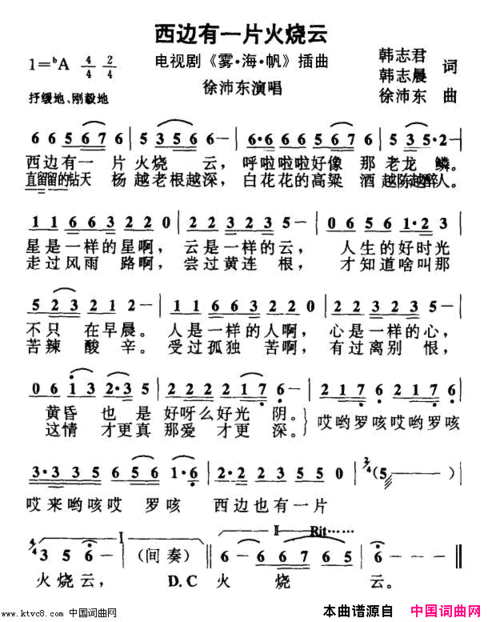 西边有一片火烧云
1=ᵇA 4/4 2/4
电视剧《雾·海·帆》插曲
韩志君
韩志晨 词
徐沛东 曲
徐沛东演唱
抒缓地、刚毅地
6 6 5 6 7 6 | 5 3 5 6 5 - | 6·6 6 6 5 6 7 6 | 5 3 5·2 - |
西边有一 片火烧 云， 呼啦啦啦好像 那 老龙 鳞。
直留留的钻天 杨 越老根越深， 白花花的高粱 酒 越陈越醉人。
1 1 6 6 3 2 2 0 | 1 1 6 6 3 2 2 - | 0 6 5 6 1·2 3 |
星是一样的星啊， 云是一样的云， 人生的好时光
走过风雨 路啊， 尝过黄连 根， 才知道啥叫那
5 2 3 2 1 2 - | 1 1 6 6 3 2 2 0 | 1 1 6 6 3 2 2 - |
不只 在早晨。 人是一样的人啊， 心是一样的心，
苦辣 酸辛。 受过孤独 苦啊， 有过离别 恨，
0 6 1 3 2·3 5 | 2 2 2 2 1 7 6 - | 2 1 7 6 2 1 7 6 |
黄昏 也是 好呀么好光 阴。 哎哟罗咳哎哟罗咳
这情 才更真 那爱 才更 深。
3·3 3 5 6 5 1·6 | 2·2 2 3 5 2 | 2/4 (5 - -) |
哎来哟咳哎 罗咳 西边也有一片
Ⅰ Ⅱ Rit……
4/4 3 5 6 - | (间奏) | 6 - 6 6 7 6 | 5 3 5 6 - | 6 - - - ‖
火烧云， D.C 火 烧 云。
www.ktvc8.com 中国词曲网
本曲谱源自 中国词曲网